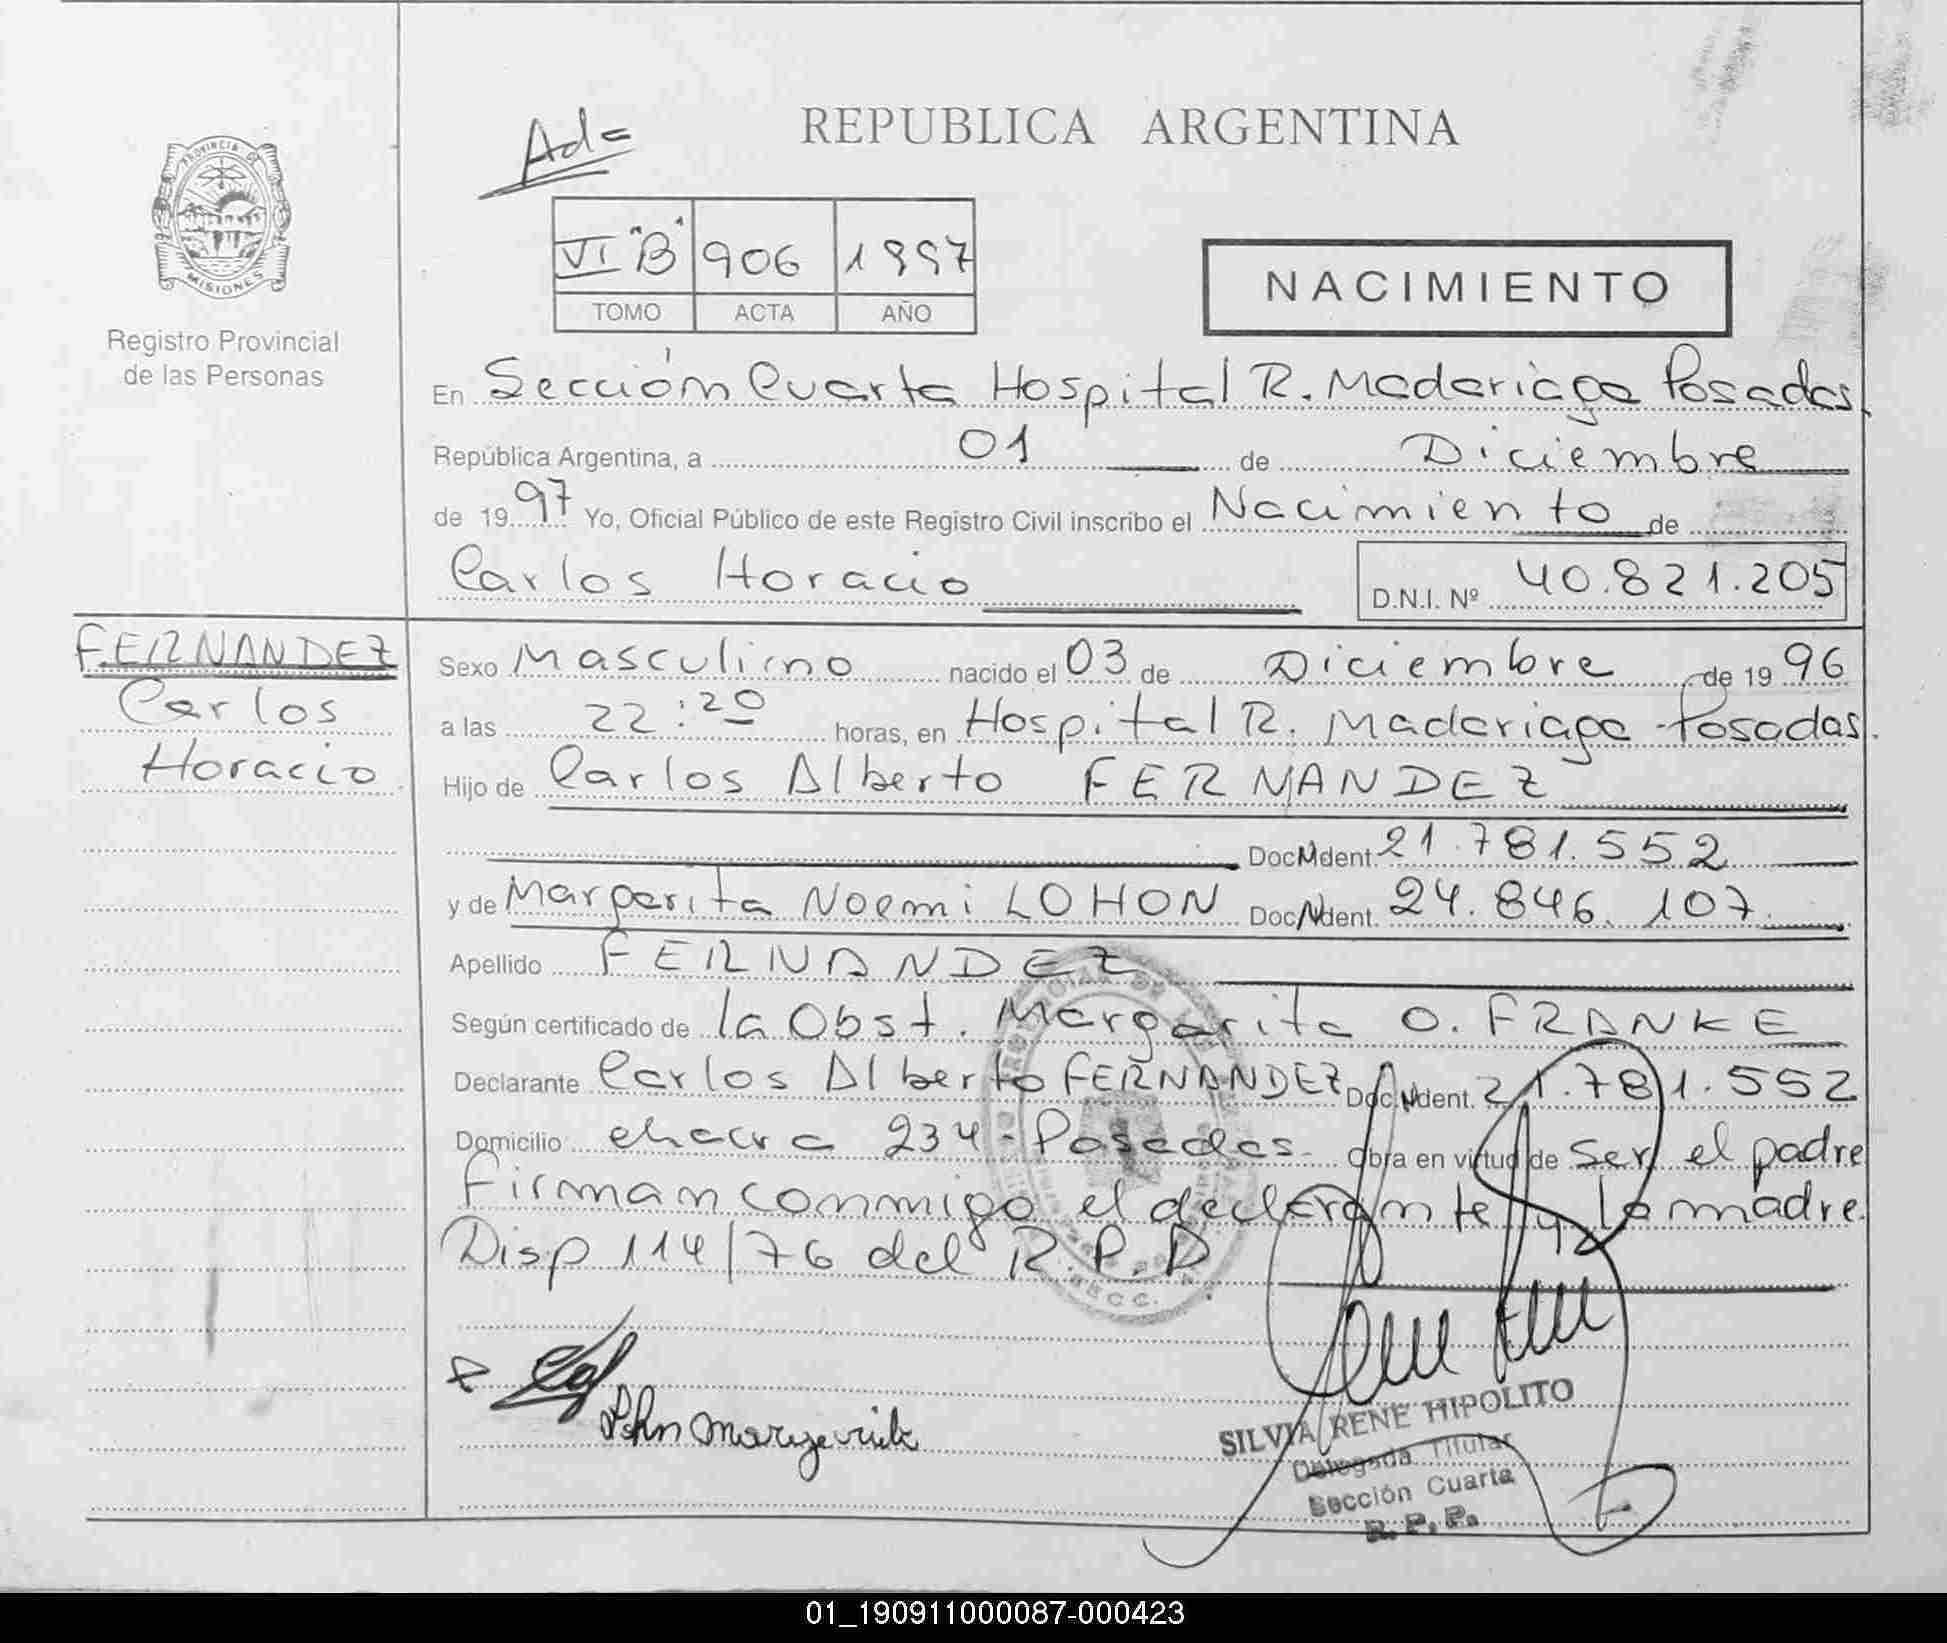 PROVINCIA DE
MISIONES
Registro Provincial
de las Personas
REPUBLICA ARGENTINA
VI "B" 906 1997
TOMO ACTA AÑO
NACIMIENTO
En Sección Cuarta Hospital R. Madariaga Posadas,
República Argentina, a 01 de Diciembre
de 1997 Yo, Oficial Público de este Registro Civil inscribo el Nacimiento de
Carlos Horacio D.N.I. Nº 40.821.205
FERNANDEZ
Carlos
Horacio
Sexo Masculino nacido el 03 de Diciembre de 19 96
a las 22:20 horas, en Hospital R. Madariaga - Posadas.
Hijo de Carlos Alberto FERNANDEZ
Doc. Ident. 21.781.552
y de Margarita Noemi LOHON Doc. Ident. 24.846.107
Apellido FERNANDEZ
Según certificado de la Obst. Margarita O. FRANKE
Declarante Carlos Alberto FERNANDEZ Doc. Ident. 21.781.552
Domicilio chacra 234 - Posadas. Obra en virtud de ser el padre
Firman conmigo el declarante y la madre.
Disp 114/76 del R.P.D
SILVIA RENE HIPOLITO
Delegada Titular
Sección Cuarta
R. P. P.
01_190911000087-000423